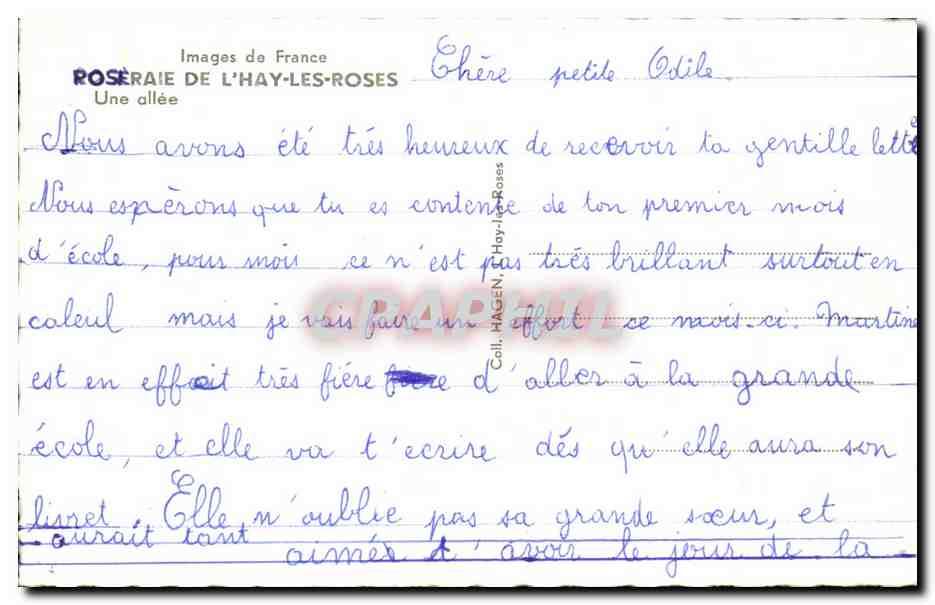 Images de France
ROSERAIE DE L'HAY-LES-ROSES
Une allée
Chère petite Odile.
Nous avons été trés heureux de recevoir ta gentille lettre
Nous espèrons que tu es contente de ton premier mois
d'école, pour moi ce n'est pas trés brillant surtout en
calcul mais je vais faire un effort ce mois-ci. Martine
est en effet très fiére d'aller à la grande
école, et elle va t'ecrire dés qu'elle aura son
livret. Elle n'oublie pas sa grande sœur, et
aurait tant aimée t'avoir le jour de la
Coll. HAGEN, L'Hay-les-Roses
CPAPHIL